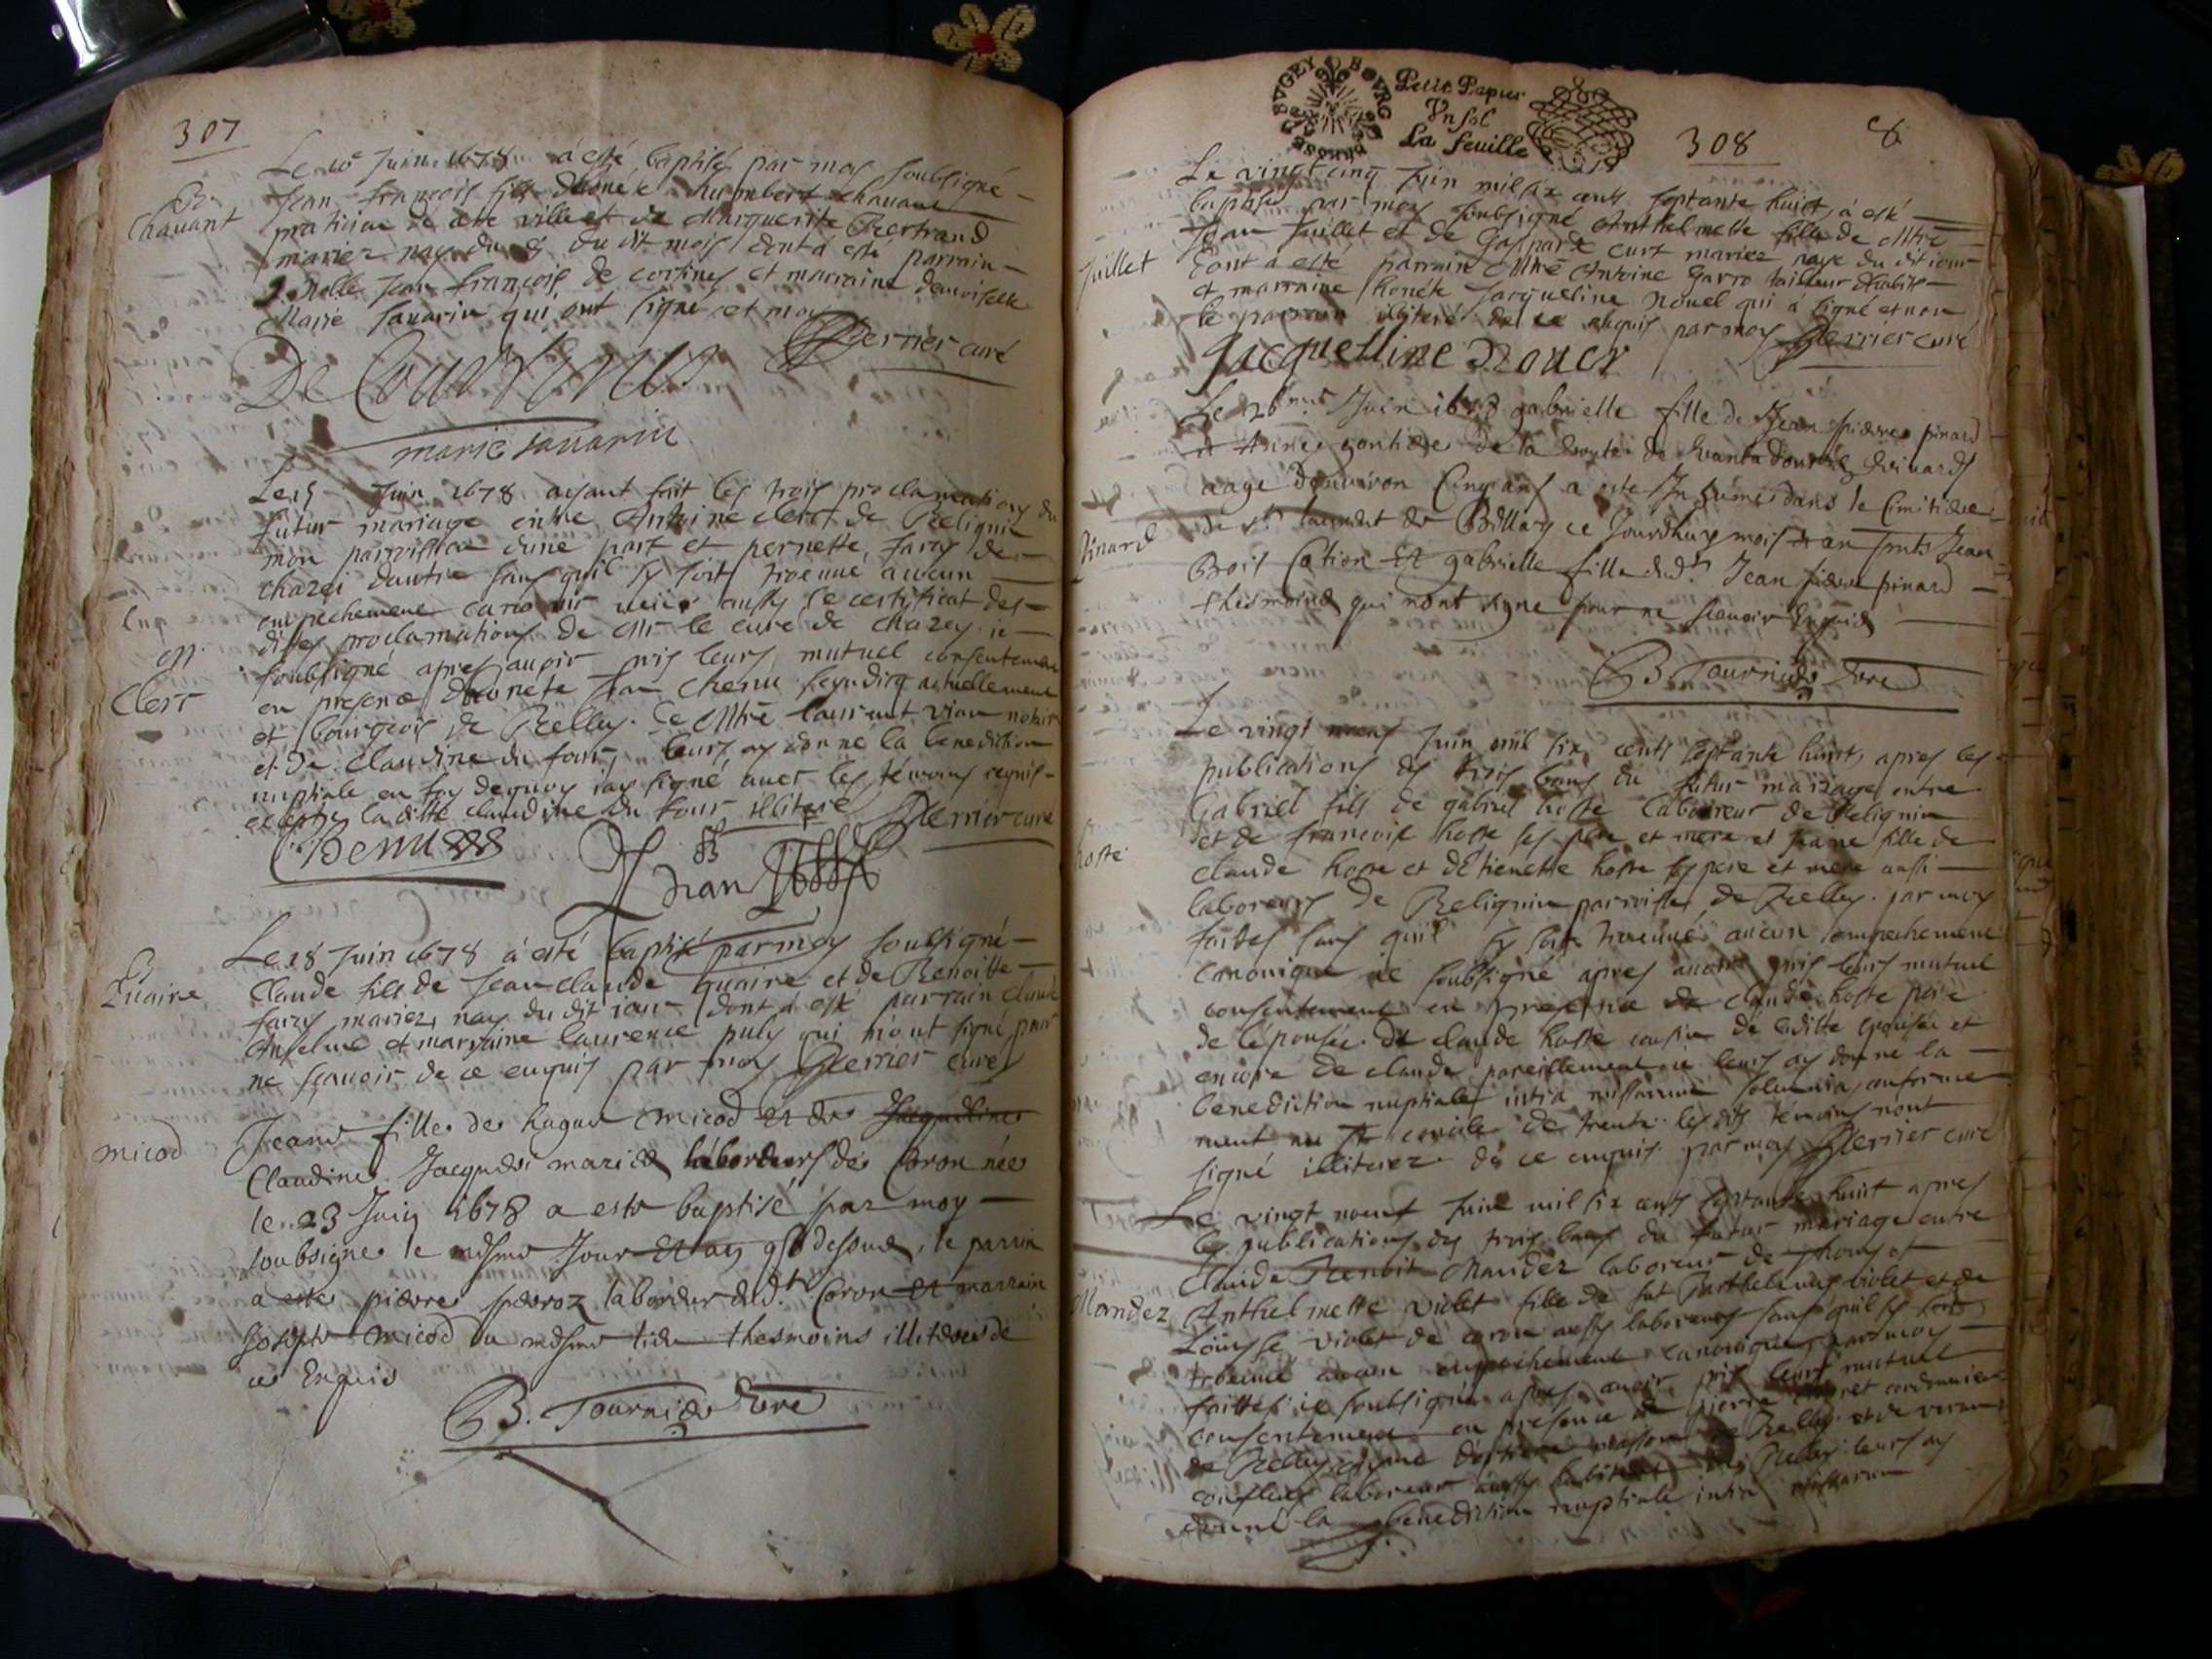 307
Le 10e Juin 1678 à esté baptisé par moy soubsigné
Jean francois fils dhonete humbert chauant
Chauant
praticien de cete ville et de Marguerite Bertrand
mariez nay du 8 du dit mois dont à esté parrain
Noble Jean francois de cortines et marraine demoiselle
Marie sauarin qui ont signé et moy
Perrier curé
marie sauarin
Le 15 Juin 1678 aÿant fait les trois proclamations du
futur mariage entre Antoine clerc de Belignin
mon parroissien dune part et pernette fary de
chazei dautre sans quil sy soit trouuué aucun
empechement canonic ueüe aussy le certificat des
dittes proclamations de Mr le curé de chazey ie
soubsigné apres auoir pris leurs mutuel consentement
en presence dhonete Jean chenu scyndicq actuellement
Clerc
et bourgeois de Belley de Mtre laurent vian notaire
et de claudine du four leurs ay donné la benediction
nuptiale en foy dequoy iay signé auec les témoins requis
excepte la ditte claudine du four illiteré Perrier curé
Le 18 Juin 1678 à esté baptisé par moy soubsigné
Claude fils de Jean claude quaire et de Benoitte
Quaire
fary mariez nay du dit iour dont à esté parrain claude
Anselme et marraine laurence puly qui niont signé pour
ne sçauoir de ce enquis par moy Perrier curé
Jeane fille de hugue micod et de Jacqueline
micod
Claudine Jacques mariés laboreurs de Coron née
le 23 Juin 1678 a este baptisé par moy
soubsigne le mesme Jour et an que dessus, le parrin
a este pierre perroz laboreur dudt Coron et marrain
Josepte micod du mesme lieu thesmoins illiteres de
ce Enquis
B. Tournier
308
8
BVGEY BOVRG
Petit Papier
Vn sol
La feuille
Le vingt cinq Juin mil six cents septante huict, à esté
baptisé par moy soubsigné Anthelmette fille de Mtre
Jean Juillet et de Gasparde curt mariez naye du dit iour
Juillet
dont à esté parrain Mtre Antoine Garro tailleur dhabits
et marraine honete Jacqueline nouel qui à signé et non
le parrain illiteré de ce enquis par moy Perrier curé
Jacquelline
Le 26me Juin 1678 gabrielle fille de Jean pierre pinard
aage denuiron Cinq ans a este Inhumée dans le Cimitiere
Pinard
de St laurent de Bellay ce Jourdhuy mois et an presents Jean
gabrielle fille dudt Jean pierre pinard
thesmoins qui nont signe pour ne scauoir Enquis
B. Tournier
Le vingt neuf Juin mil six cents septante huict, apres les
publications des trois bans du futur mariage entre
Gabriel fils de gabriel hoste laboureur de Belignin
et de francoise hoste ses pere et mere et Jeane fille de
hoste
claude hoste et détienette hoste ses pere et mere aussi
laboreurs de Belignin parroisse de Belley par moy
faites sans quil sy soit trouuué aucun empechement
canonique ie soubsigné apres auoir pris leurs mutuel
consentement en presence de claude hoste pere
de lépousée de claude hoste cousin de laditte epousée et
encore de claude pareillement ie leurs ay donné la
benediction nuptiale intra missarum solemnia conforme
ment au St concile de trente les dits temoins nont
signé illiterez de ce enquis par moy Perrier curé
Le vingt neuf Juin mil six cents septante huict apres
les publications des trois bans du futur mariage entre
Claude Benoit Mandez laboreur de
Mandez
Anthelmette violet fille de fut Barthelemy violet et de
Loüise violet de coron aussy laboreurs sans quil sy soit
trouuué aucun empechement canonique par moy
faittes ie soubsigné apres auoir pris leurs mutuel
consentement en presence de pierre cordonnier
de Belley
laboreur aussy habitant Belley leurs ay
donné la benediction nuptiale intra missarum